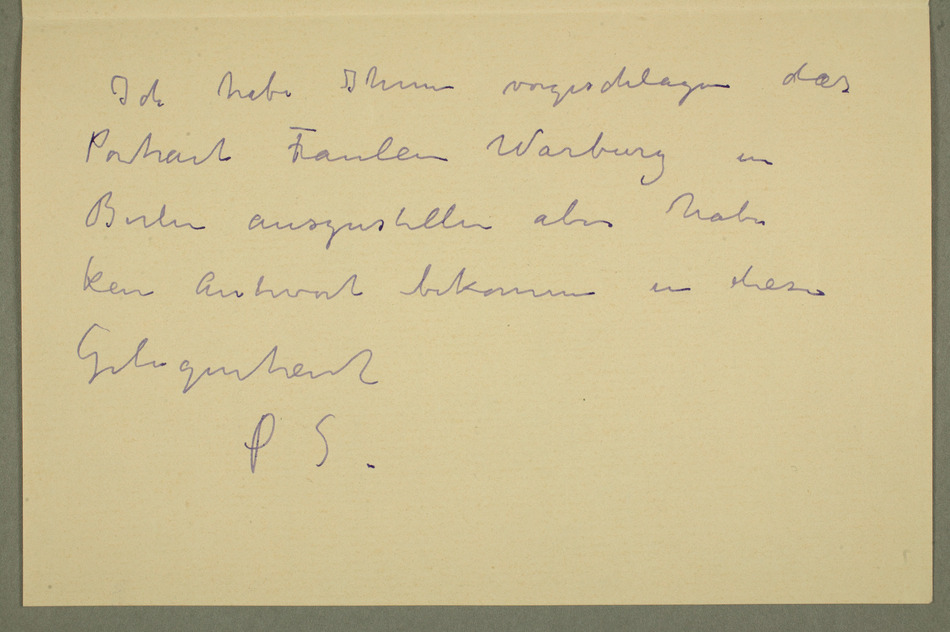 Ich habe Ihnen vorgeschlagen das
Portrait Fraulein Warburg in
Berlin auszustellen aber habe
kein Antwort bekommen in diese
Gelegenheit
P S.